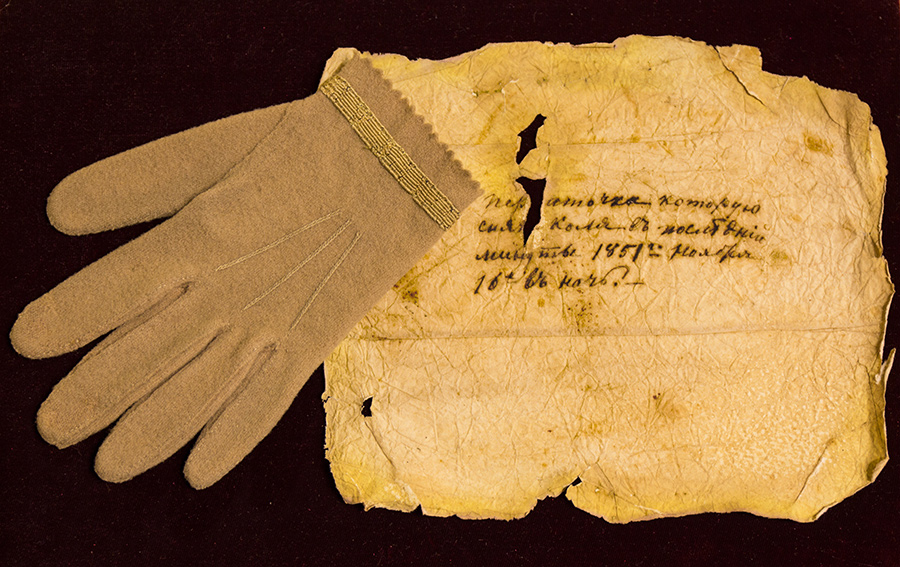 Перчаточка которую
снял Коля въ послѣдній
минуты 1851го Ноября
16го въ ночь.—